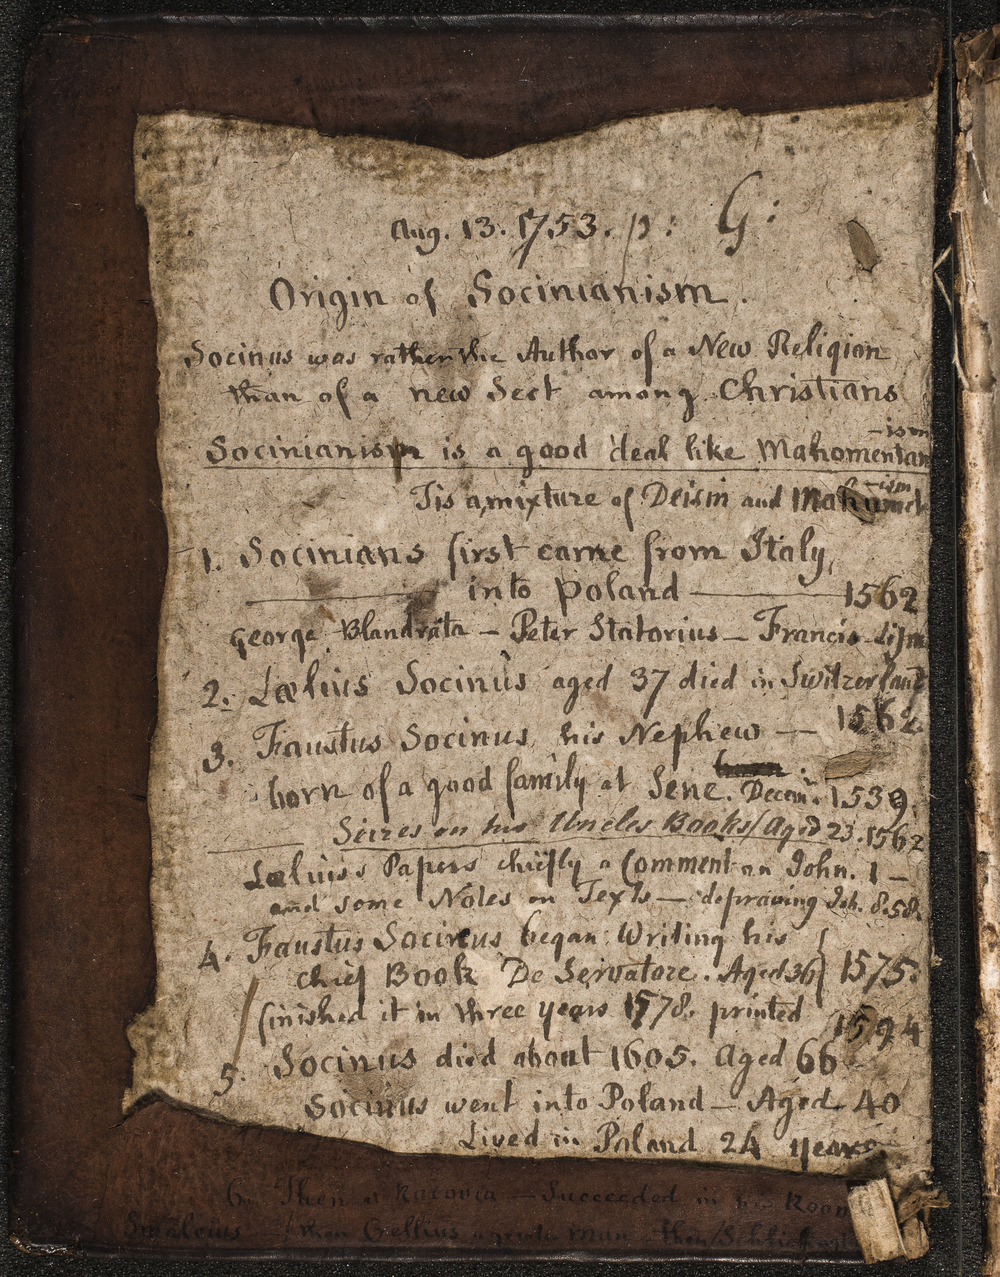 Aug. 13. 1753. p: G:
Origin of Socinianism.
Socinus was rather the Author of a New Religion
than of a new Sect among Christians
-ism
Socinianism is a good deal like Mahometan
-ism
Tis a mixture of Deism and Mahomet
1. Socinians first came from Italy,
into Poland — 1562
George Blandrata — Peter Statorius — Francis
2. Lælius Socinus aged 37 died in Switzerland
1562.
3. Faustus Socinus, his Nephew —
born of a good family at Sene. Decem. 1539.
Seizes on his Uncles Books/Aged 23. 1562
Lælius's Papers chiefly a Comment on John. 1 —
and some Notes on Texts — depraving Joh. 8.58.
4. Faustus Socinus began Writing his
chief Book De Servatore. Aged 36 } 1575.
finished it in three years 1578. printed 1594
5. Socinus died about 1605. Aged 66
Socinus went into Poland — Aged 40
Lived in Poland 24 years.
6. Then at Racovia — Succeeded in his Room
Smalcius — then Crellius a great man — then